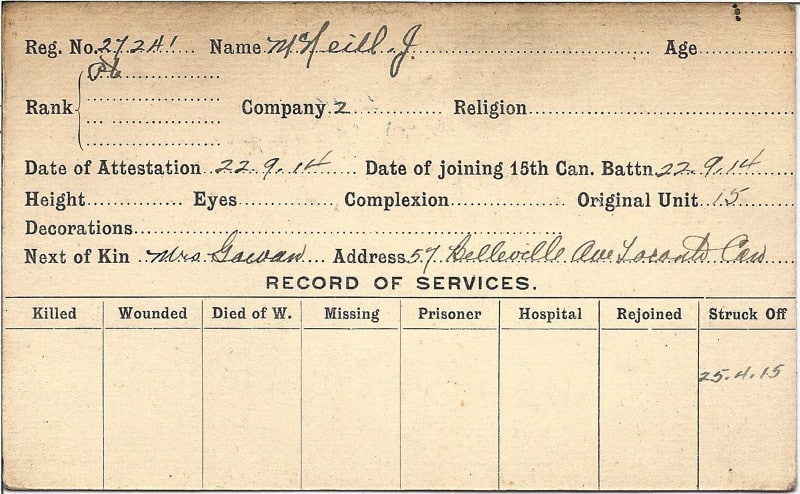 Reg. No. 27241 Name McNeill. J. Age
Pte
Rank Company 2 Religion
Date of Attestation 22.9.14 Date of joining 15th Can. Battn. 22.9.14
Height Eyes Complexion Original Unit 15
Decorations
Next of Kin Mrs Gowan Address 57 Belleville Ave Toronto Can
RECORD OF SERVICES.
Killed Wounded Died of W. Missing Prisoner Hospital Rejoined Struck Off
25.4.15